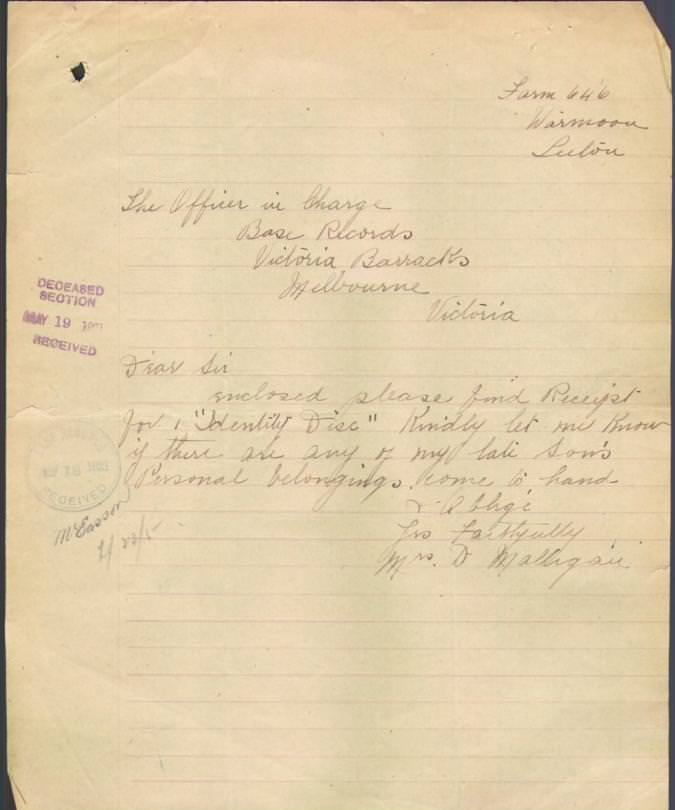 Farm 646
Warmoon
Leeton
The Officer in Charge
Base Records
Victoria Barracks
Melbourne
Victoria
DECEASED
SECTION
MAY 19
RECEIVED
Dear Sir
enclosed please find Receipt
for 1 "Identity Disc" Kindly let me know
if there are any of my late Son's
Personal belongings come to hand
& Oblige
Yrs Faithfully
Mrs. D Malligan
RECEIVED
McEasson